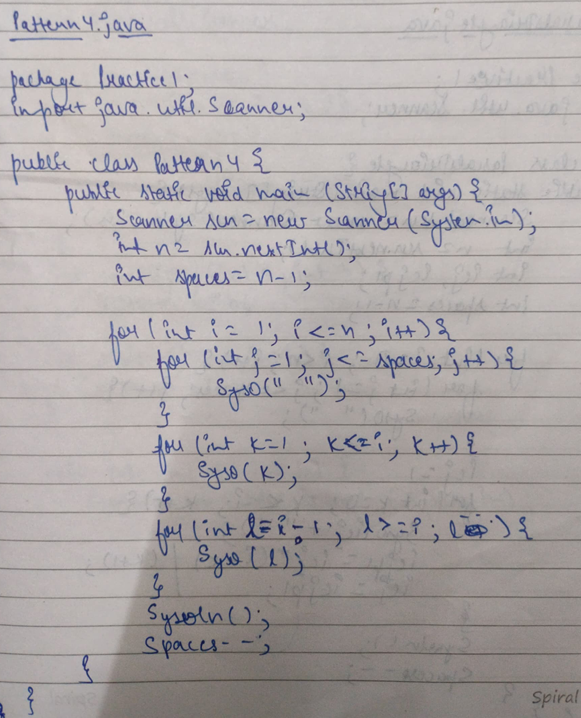 Pattern4.java
package Practice1;
import java.util.Scanner;
public class Pattern4 {
public static void main (String[] args) {
Scanner scn = new Scanner (System.in);
int n = scn.nextInt();
int spaces = n-1;
for (int i = 1; i <= n; i++) {
for (int j = 1; j <= spaces; j++) {
Syso(" ");
}
for (int k=1; k<=i; k++) {
Syso(k);
}
for (int l=i-1; l>=i; l--) {
Syso(l);
}
Sysoln();
Spaces--;
}
}
}
Spiral